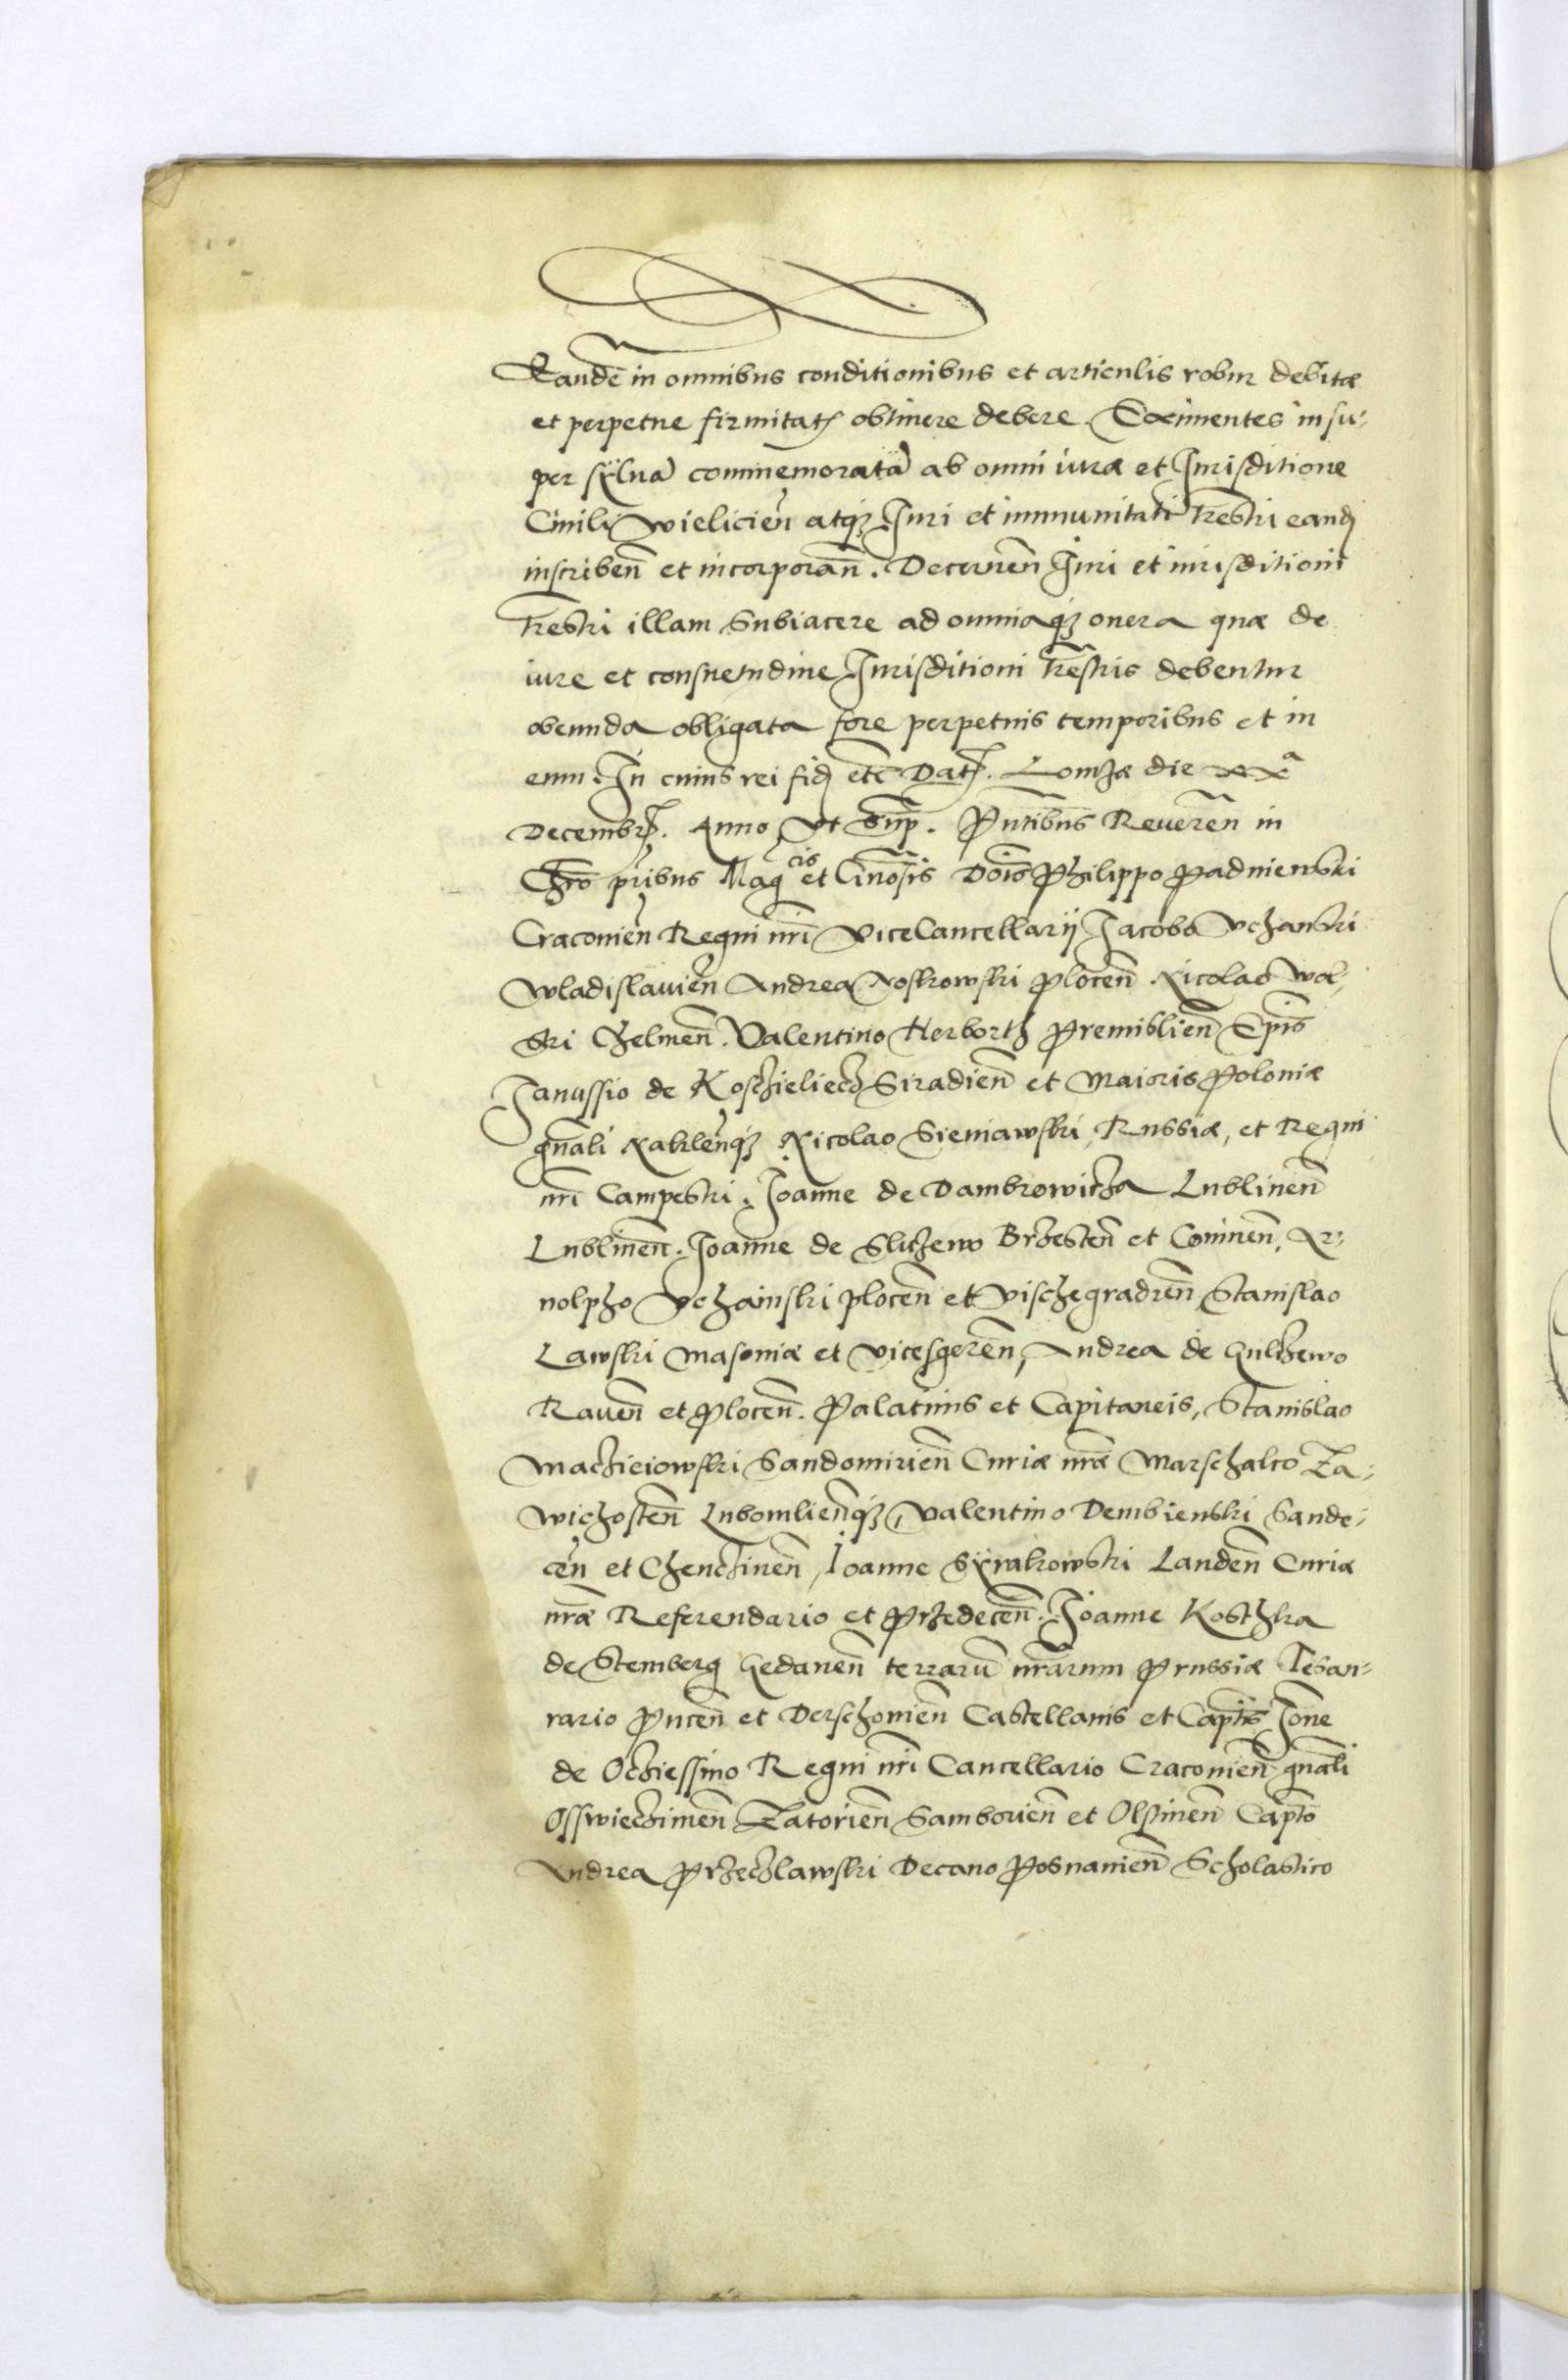 Eandē in omnibus conditionibus et articulis robur debitæ
et perpetue firmitatꝭ obtinere debere. Eximentes insu-
per sÿlvā commemoratā ab omni iure et Jurisditione
Civili Wielicień atqꝫ Juri et immunitati Trēstri eandꝫ
inscribeñ et incorporañ. Decerneñ Juri et iurisditioni
Trēstri illam Subiacere ad omniaqꝫ onera quæ de
iure et consuetudine Jurisditioni Trēstris debentur
obeunda obligata fore perpetuis temporibus et in
euum. In cuius rei fidꝫ etc̄ Datꝭ. Lomzæ die xxᵃ
Decembrꝭ. Anno Ut Sup̄. Pn̄tibus Reuereñ in
Chr̄o pr̄ibus Mag ᶜⁱˢ et Gn̄osis Dn̄is Philippo Padnienski
Cracovień Regni nr̄i ViceCancellarÿ Jacobo Uchanski
Wladislavień Andrea Noskowski Ploceñ Nicolao Wol-
ski Chelmeñ. Valentino Herborth Premislień Ep̄is
Janussio de Koschieliecz Siradień et Maioris Poloniæ
gn̄ali Nakleñqꝫ Nicolao Sieniawski, Russiæ, et Regni
nr̄i Campestri. Joanne de Dambrowicza Lublineñ
Lublineñ. Joanne de Sluzewo Brzesteñ et Conineñ, Ar-
nolpho Uchainski ploceñ et Vischegradieñ Stanislao
Lawski Masoviæ et Vicesgereñ, Andrea de Gulczewo
Raveñ et Ploceñ. Palatinis et Capitaneis, Stanislao
Maczieiowski Sandomirień Curiæ nr̄æ Marschalco Za-
wichosteñ Lubomlieñqꝫ, Valentino Dembienski Sande-
ceñ et Chencineñ, Joanne Sÿrakowski Landeñ Curiæ
nr̄æ Referendario et Przedeceñ. Joanne Kosthka
de Stemberg Gedaneñ terrarū nr̄arum Prussiæ Tesau-
rario Puceñ et Derschovień Castellanis et Cap̄tis Jōne
de Ocziessino Regni nr̄i Cancellario Cracovień gn̄ali
Osswieczimeñ Zatorień Samborień et Olstineñ Cap̄to
Andrea Przeczlawski Decano Posnanień Scholastico